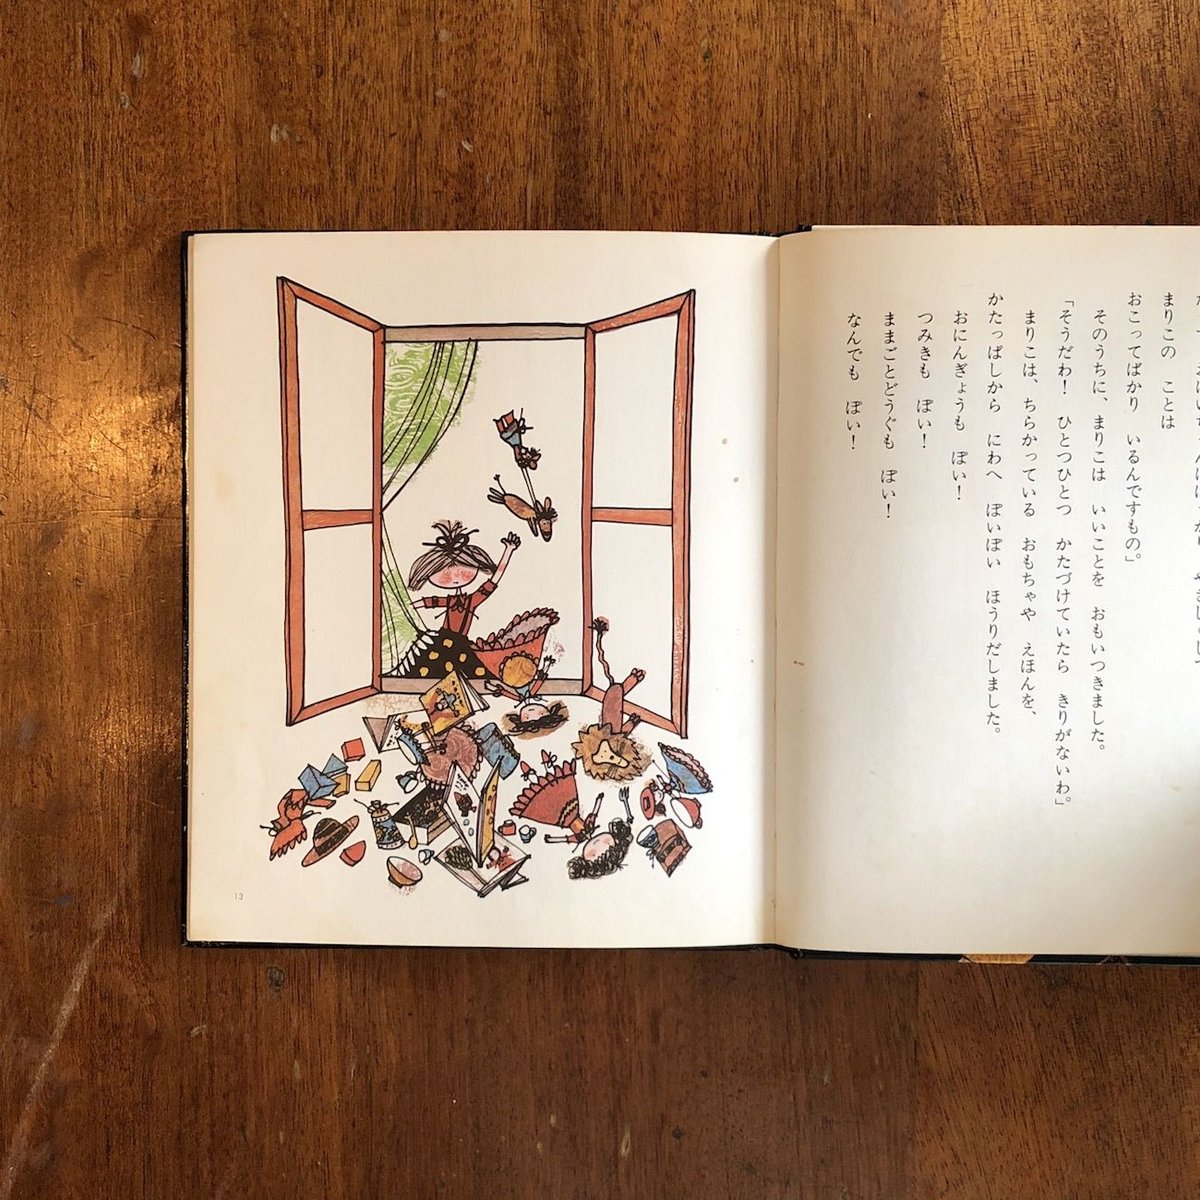 まりこの　ことは
おこってばかり　いるんですもの」
そのうちに、まりこは　いいことを　おもいつきました。
「そうだわ！　ひとつひとつ　かたづけていたら　きりがないわ。」
まりこは、ちらかっている　おもちゃや　えほんを、
かたっぱしから　にわへ　ぽいぽい　ほうりだしました。
おにんぎょうも　ぽい！
つみきも　ぽい！
ままごとどうぐも　ぽい！
なんでも　ぽい！
13